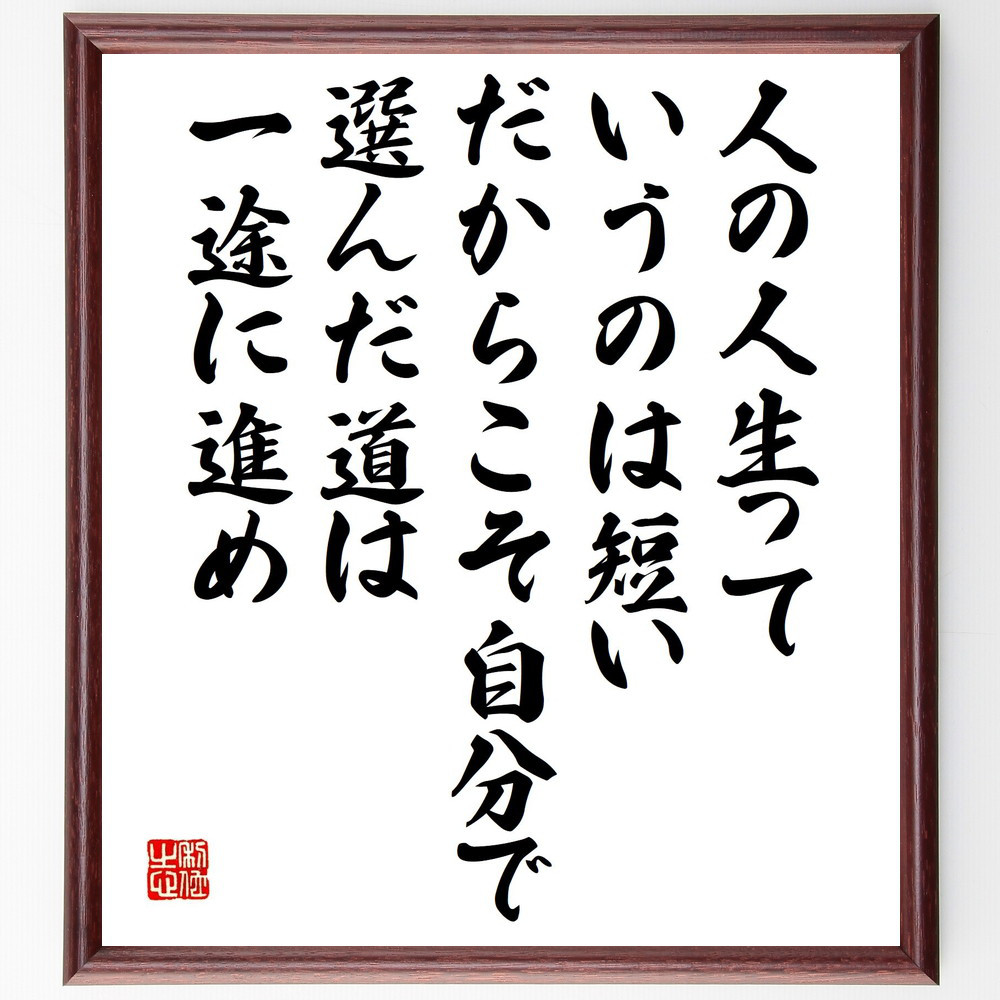 人の人生って
いうのは短い
だからこそ自分で
選んだ道は
一途に進め